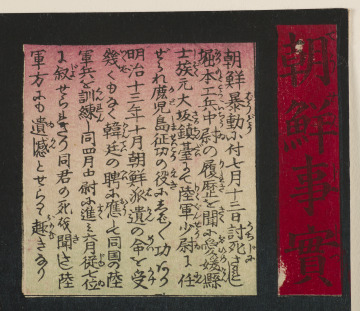 朝鮮事實
朝鮮暴動に付七月廿三日討死せし
堀本工兵中尉の履歴を聞に愛媛縣
士族元大坂鎮臺にて陸軍少尉に任
せられ鹿児島征討の役に
明治十三年十月朝鮮派遣の命を受
幾くもなく韓廷の聘に應じ同国の陸
軍兵を訓練し同四月中尉に進み六月從七位
に叙せらる 同君の死伐聞き陸
軍方にも遺憾とせらる趣きなり